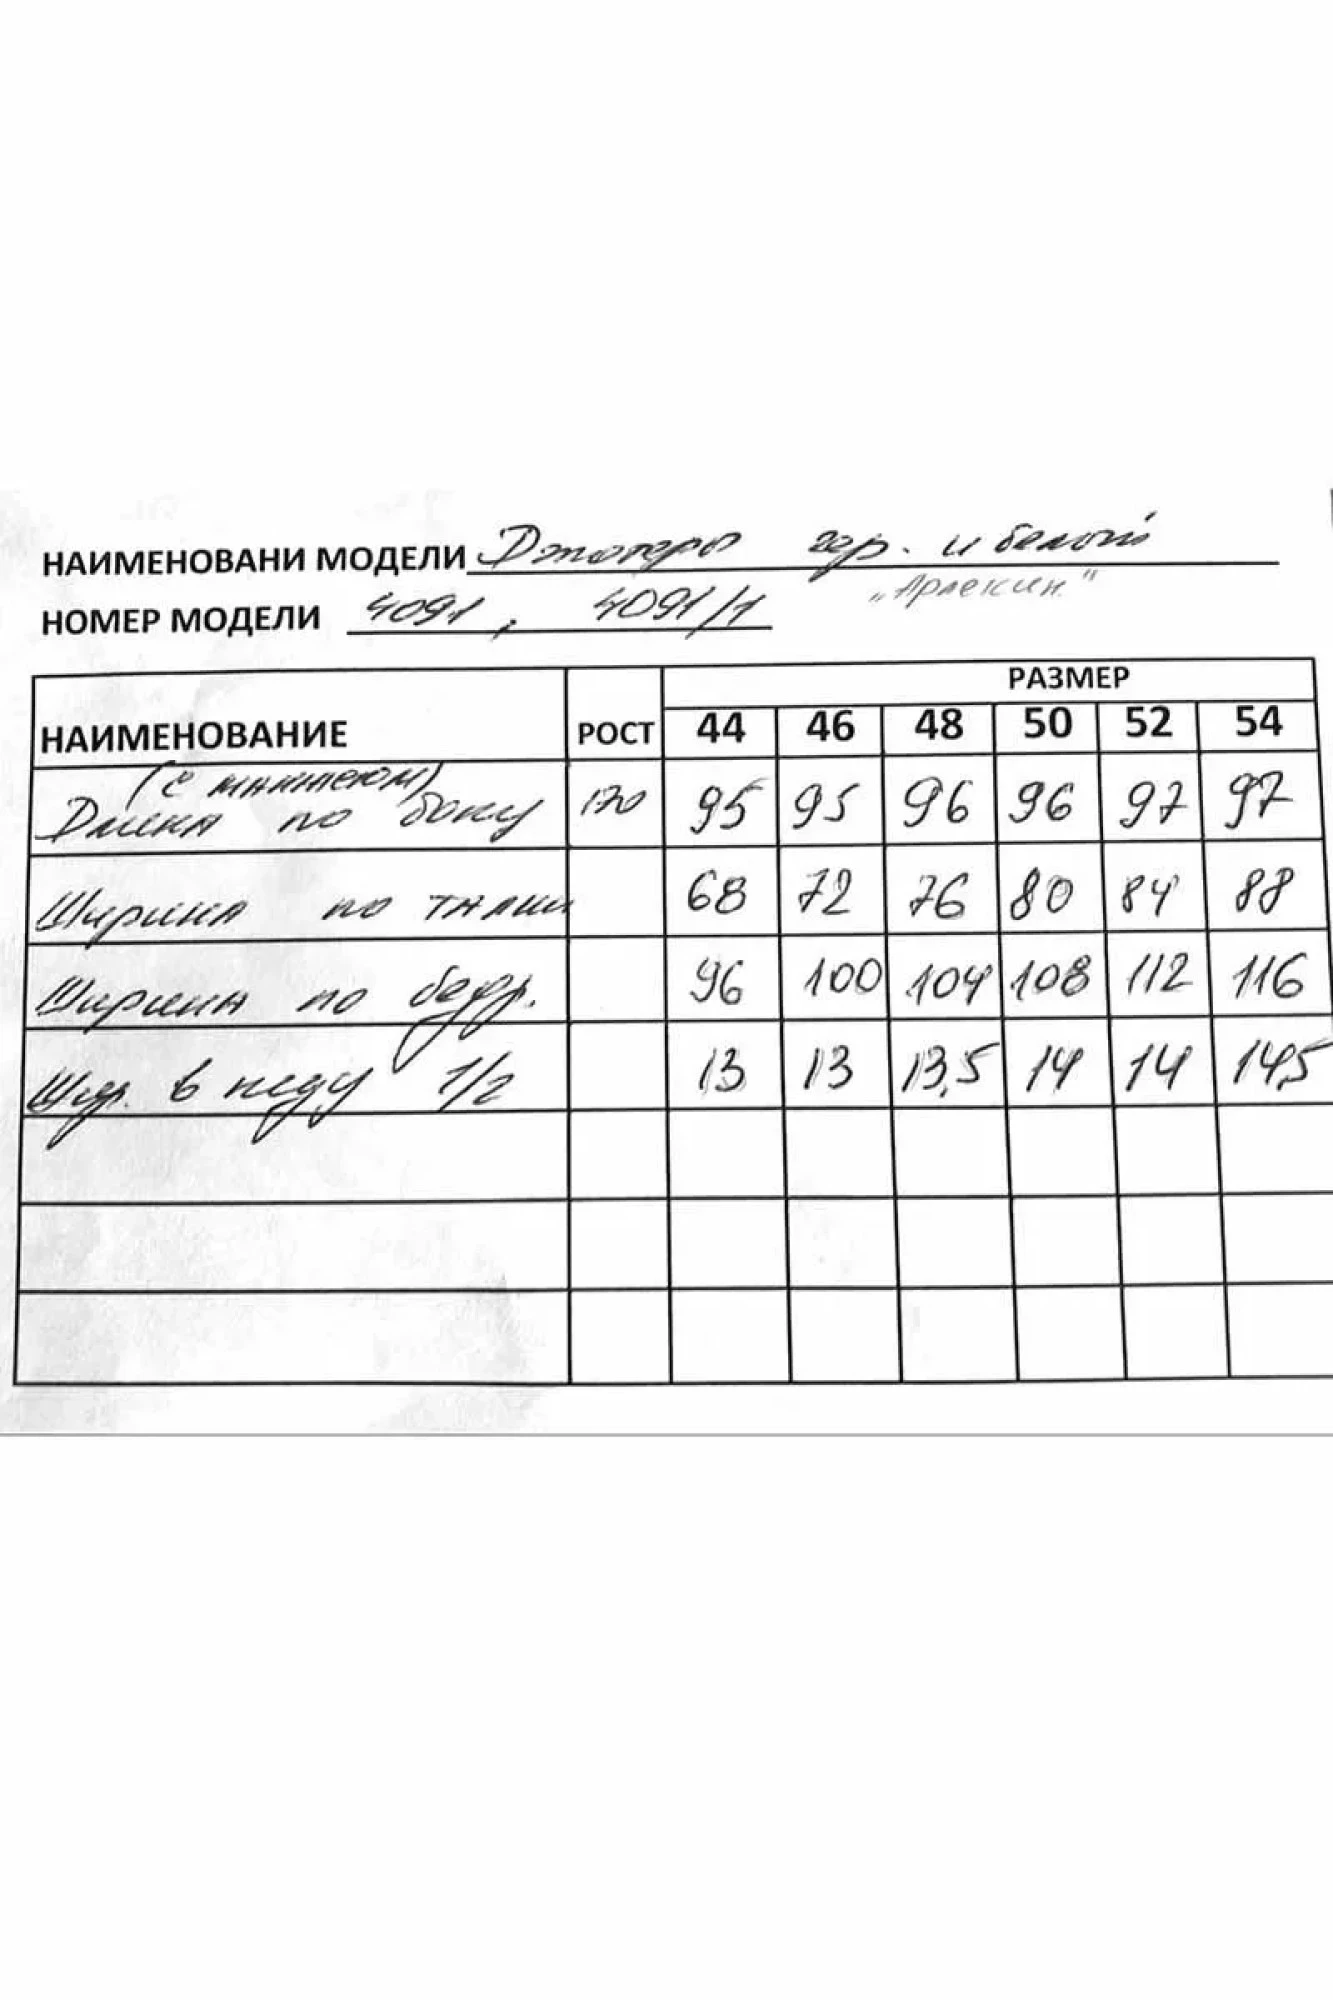 НАИМЕНОВАНИ МОДЕЛИ Джоггеры чер. и белый
"Арлекин"
НОМЕР МОДЕЛИ 4091, 4091/1
РАЗМЕР
НАИМЕНОВАНИЕ РОСТ 44 46 48 50 52 54
(с манжетом)
Длина по боку 170 95 95 96 96 97 97
Ширина по талии 68 72 76 80 84 88
Ширина по бедр. 96 100 104 108 112 116
Шир. в низу 1/2 13 13 13,5 14 14 14,5